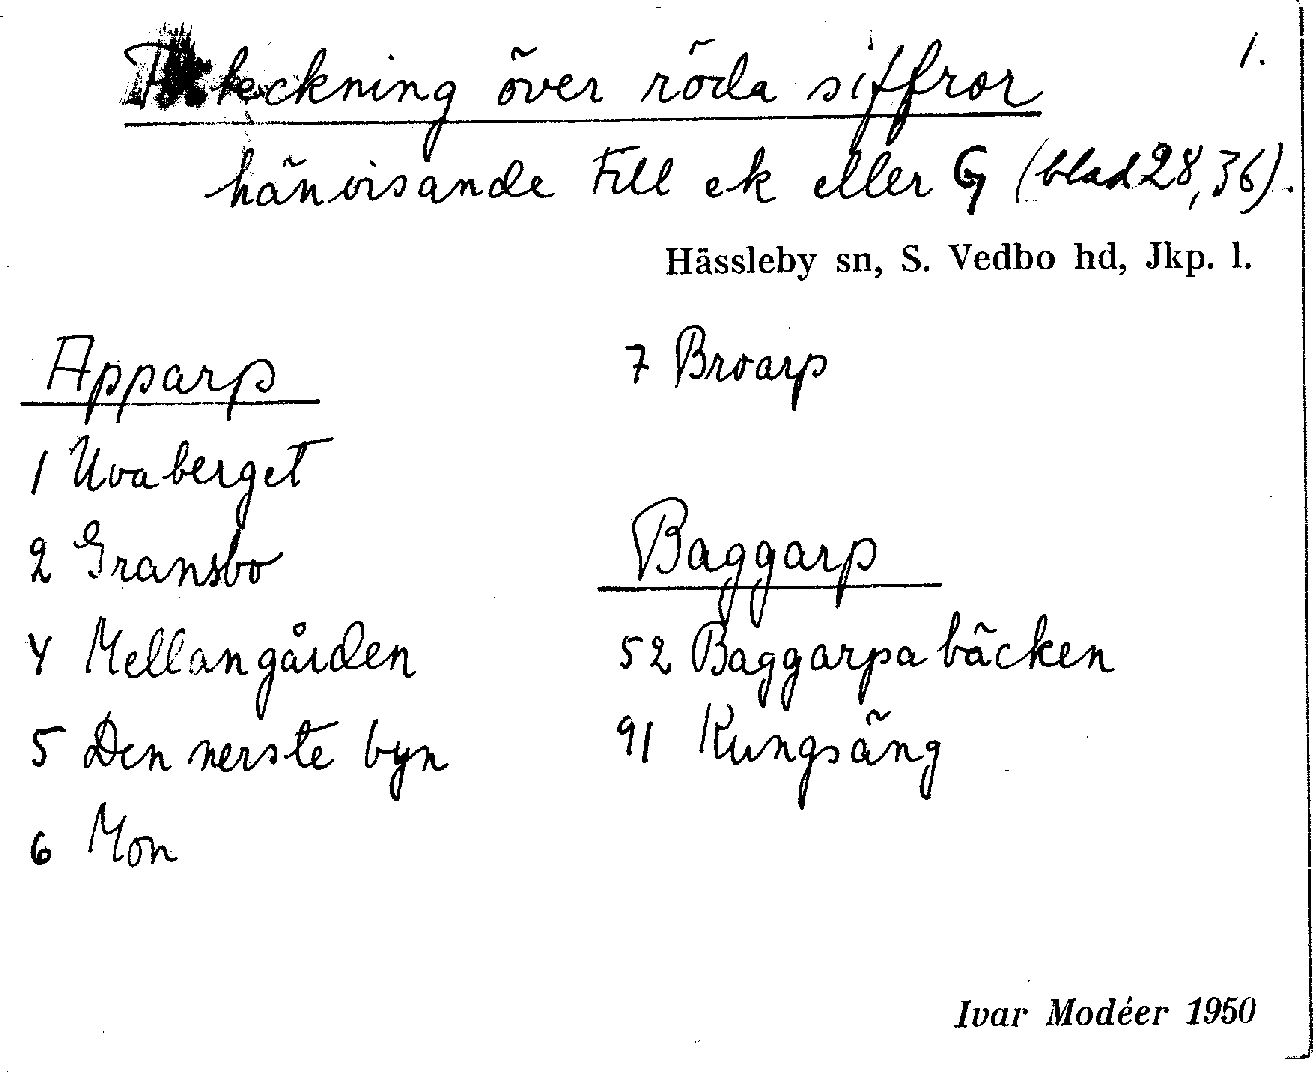 1.
teckning över röda siffror
hänvisande till ek eller G (blad 28, 36).
Hässleby sn, S. Vedbo hd, Jkp. l.
Apparp
1 Uvaberget
2 Gransbo
4 Mellangården
5 Den nerste byn
6 Mon
7 Broarp
Baggarp
52 Baggarpabäcken
91 Kungsäng
Ivar Modéer 1950